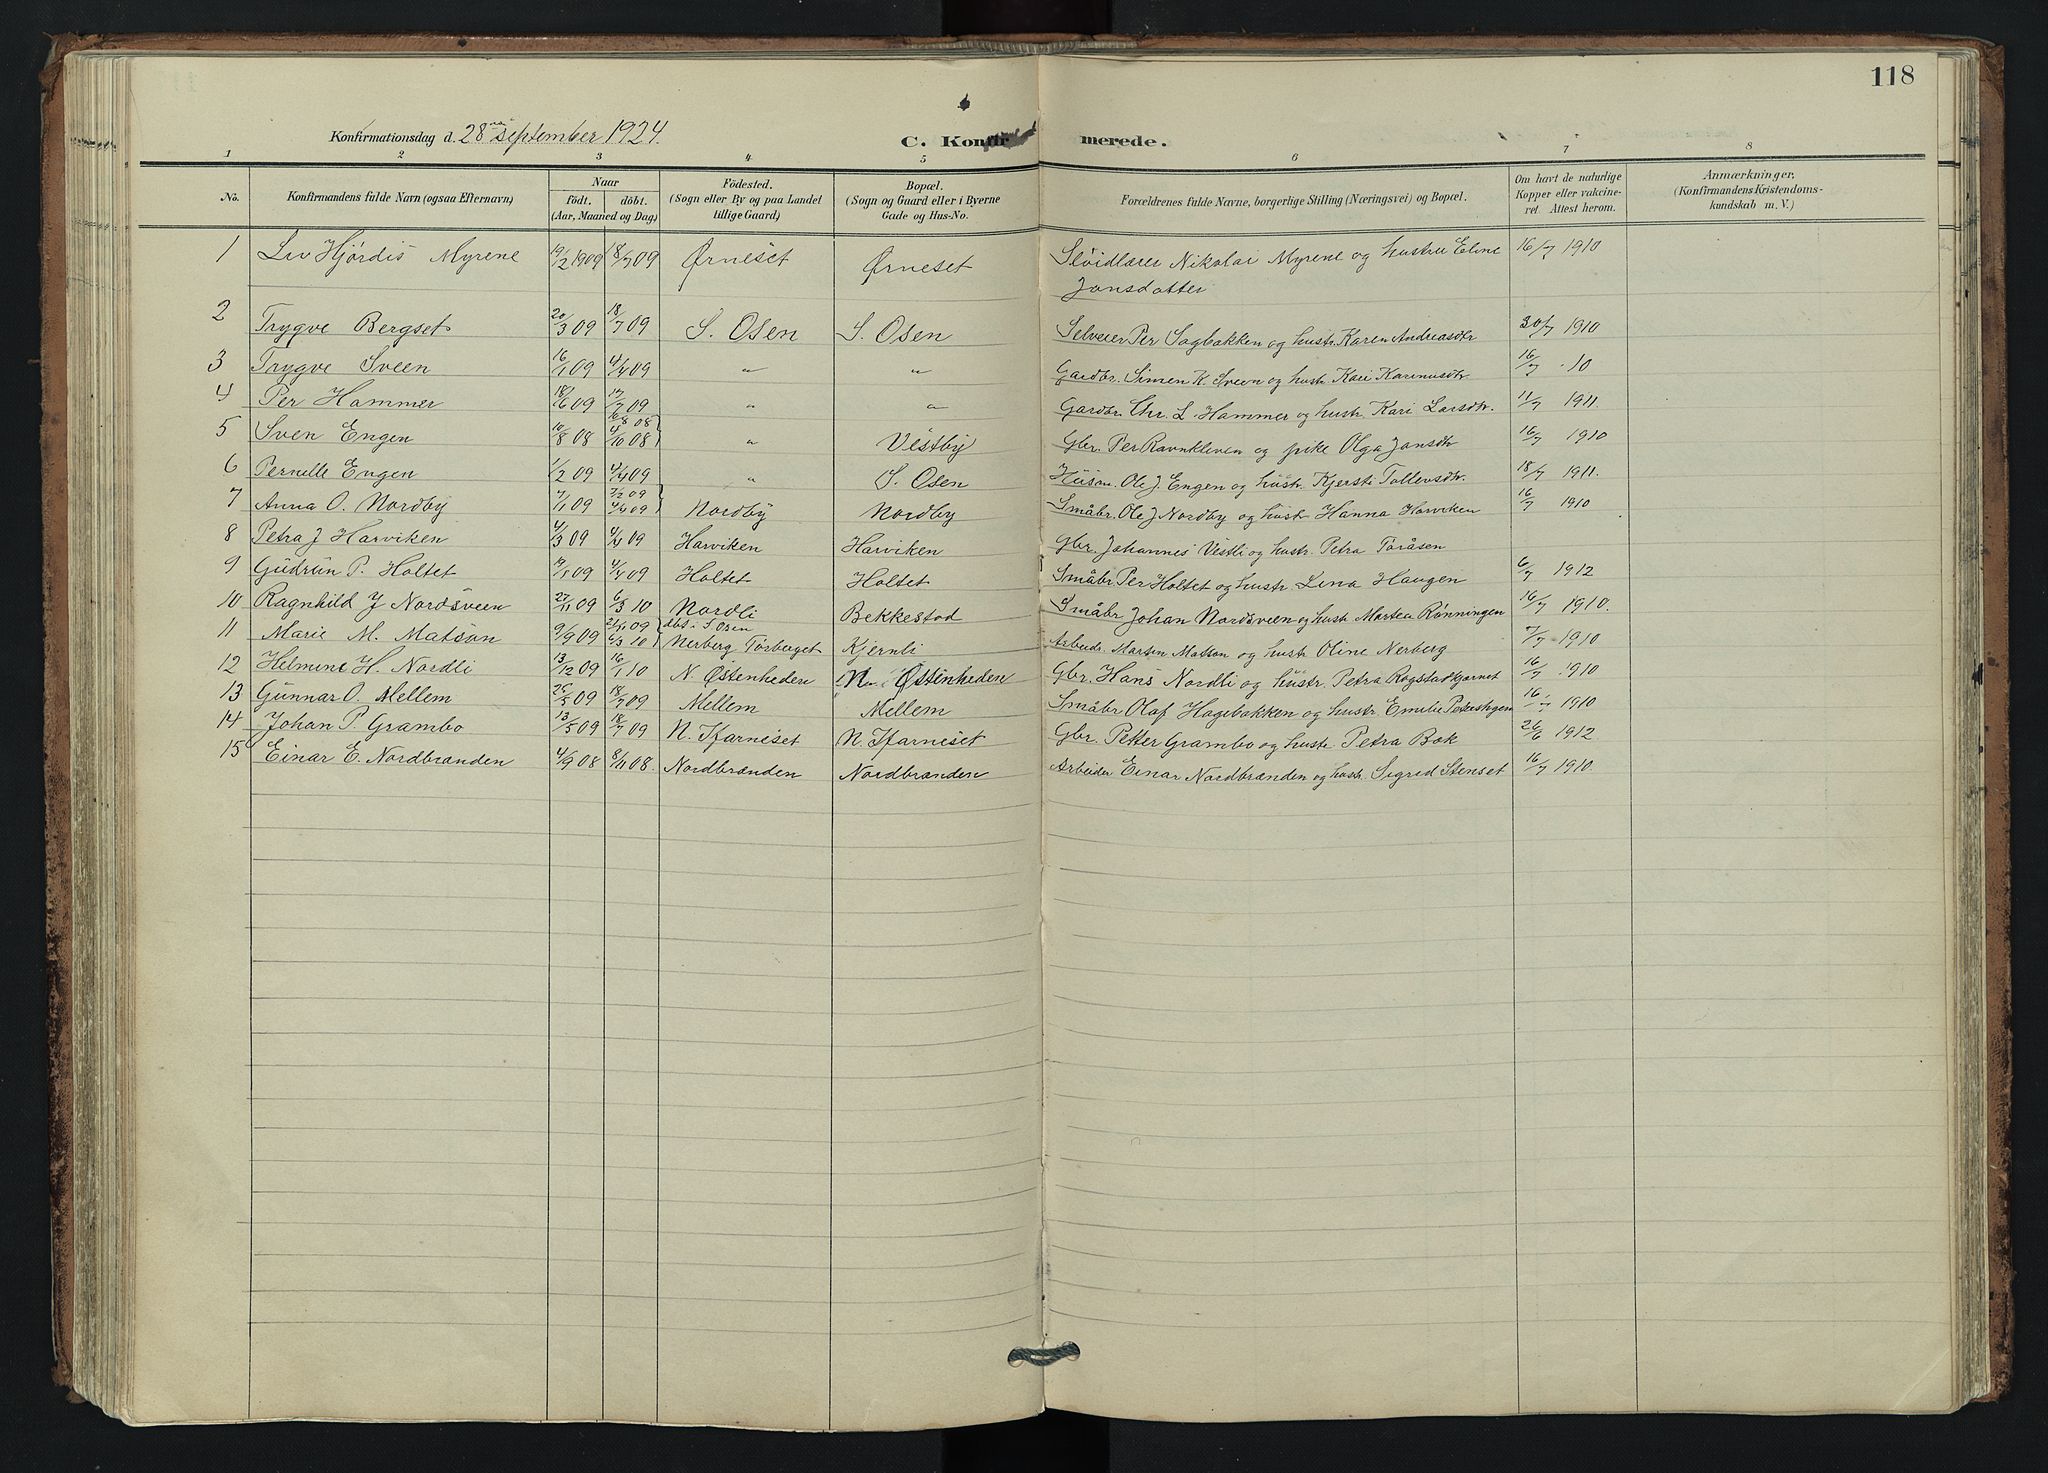 118
Konfirmationsdag d. 28de september 1924.
C. Konfirmerede.
1 2 3 4 5 6 7 8
No. Konfirmandens fulde Navn (ogsaa Efternavn) Naar født. døbt. (Aar, Maaned og Dag) Födested. (Sogn eller By og paa Landet tillige Gaard) Bopæl. (Sogn og Gaard eller i Byerne Gade og Hus-No. Forældrenes fulde Navne, borgerlige Stilling (Næringsvei) og Bopæl. Om havt de naturlige Kopper eller vakcineret. Attest herom. Anmærkninger. (Konfirmandens Kristendomskundskab m. V.)
1 Liv Hjørdis Myrene 19/2 1909 18/7 09 Ørneset Ørneset Sløidlærer Nikolai Myrene og hustru Eline 16/7 1910
Jonsdatter
2 Trygve Bergset 20/3 09 18/7 09 S. Osen S. Osen Selveier Per Sagbakken og hustr. Karen Andreasdtr 30/7 1910
3 Trygve Sveen 16/1 09 4/4 09 " " Gardbr. Simen K. Sveen og hustr. Kari Karinusdtr. 16/7 10
4 Per Hammer 18/6 09 17/7 09 " " Gardbr. Chr. L. Hammer og hustr. Kari Larsdtr. 11/7 1911.
5 Sven Engen 10/8 08 16/8 08 4/10 08 " Vestby Gbr. Per Ravnkleven og pike Olga Jansdtr 16/7 1910
6 Pernille Engen 1/2 09 4/4 09 " S. Osen Husm. Ole J. Engen og hustr. Kjersti Tollevsdtr. 18/7 1911.
7 Anna O. Nordby 7/1 09 7/2 09 4/4 09 Nordby Nordby Småbr. Ole J Nordby og hustr Hanna Harviken 16/7 1910
8 Petra J Harviken 4/3 09 4/4 09 Harviken Harviken Gbr. Johannes Vestli og hustr. Petra Toråsen
9 Gudrun P. Holtet 19/1 09 4/4 09 Holtet Holtet Småbr Per Holtet og hustr. Lina Haugen 6/7 1912
10 Ragnhild J Nordsveen 27/11 09 6/3 10 Nordli Bekkestad Småbr Johan Nordsveen og hustr Martea Rønningen 16/7 1910.
11 Marie M. Matson 9/9 09 6/3 10 døbt i S. Osen Nerberg Torberget Kjernli Arbeidr. Martin Matson og hustr Oline Nerberg 7/7 1910
12 Helmine H. Nordli 13/12 09 16/1 10 N. Østenheden N. Østenheden Gbr. Hans Nordli og hustr. Petra Rogstadkjernet 16/7 1910
13 Gunnar O. Mellem 25/5 09 18/7 09 Mellem Mellem Småbr Olaf Hagebakken og hustr. Emilie 16/7 1910
14 Johan P. Grambo 13/5 09 18/7 09 N. Tfarneset N. Tfarneset Gbr. Petter Grambo og hustr. Petra Bak 26/6 1912.
15 Einar E. Nordbranden 4/9 08 8/11 08. Nordbranden Nordbranden Arbeider Einar Nordbranden og hustr. Sigrid Stenset 16/7 1910.